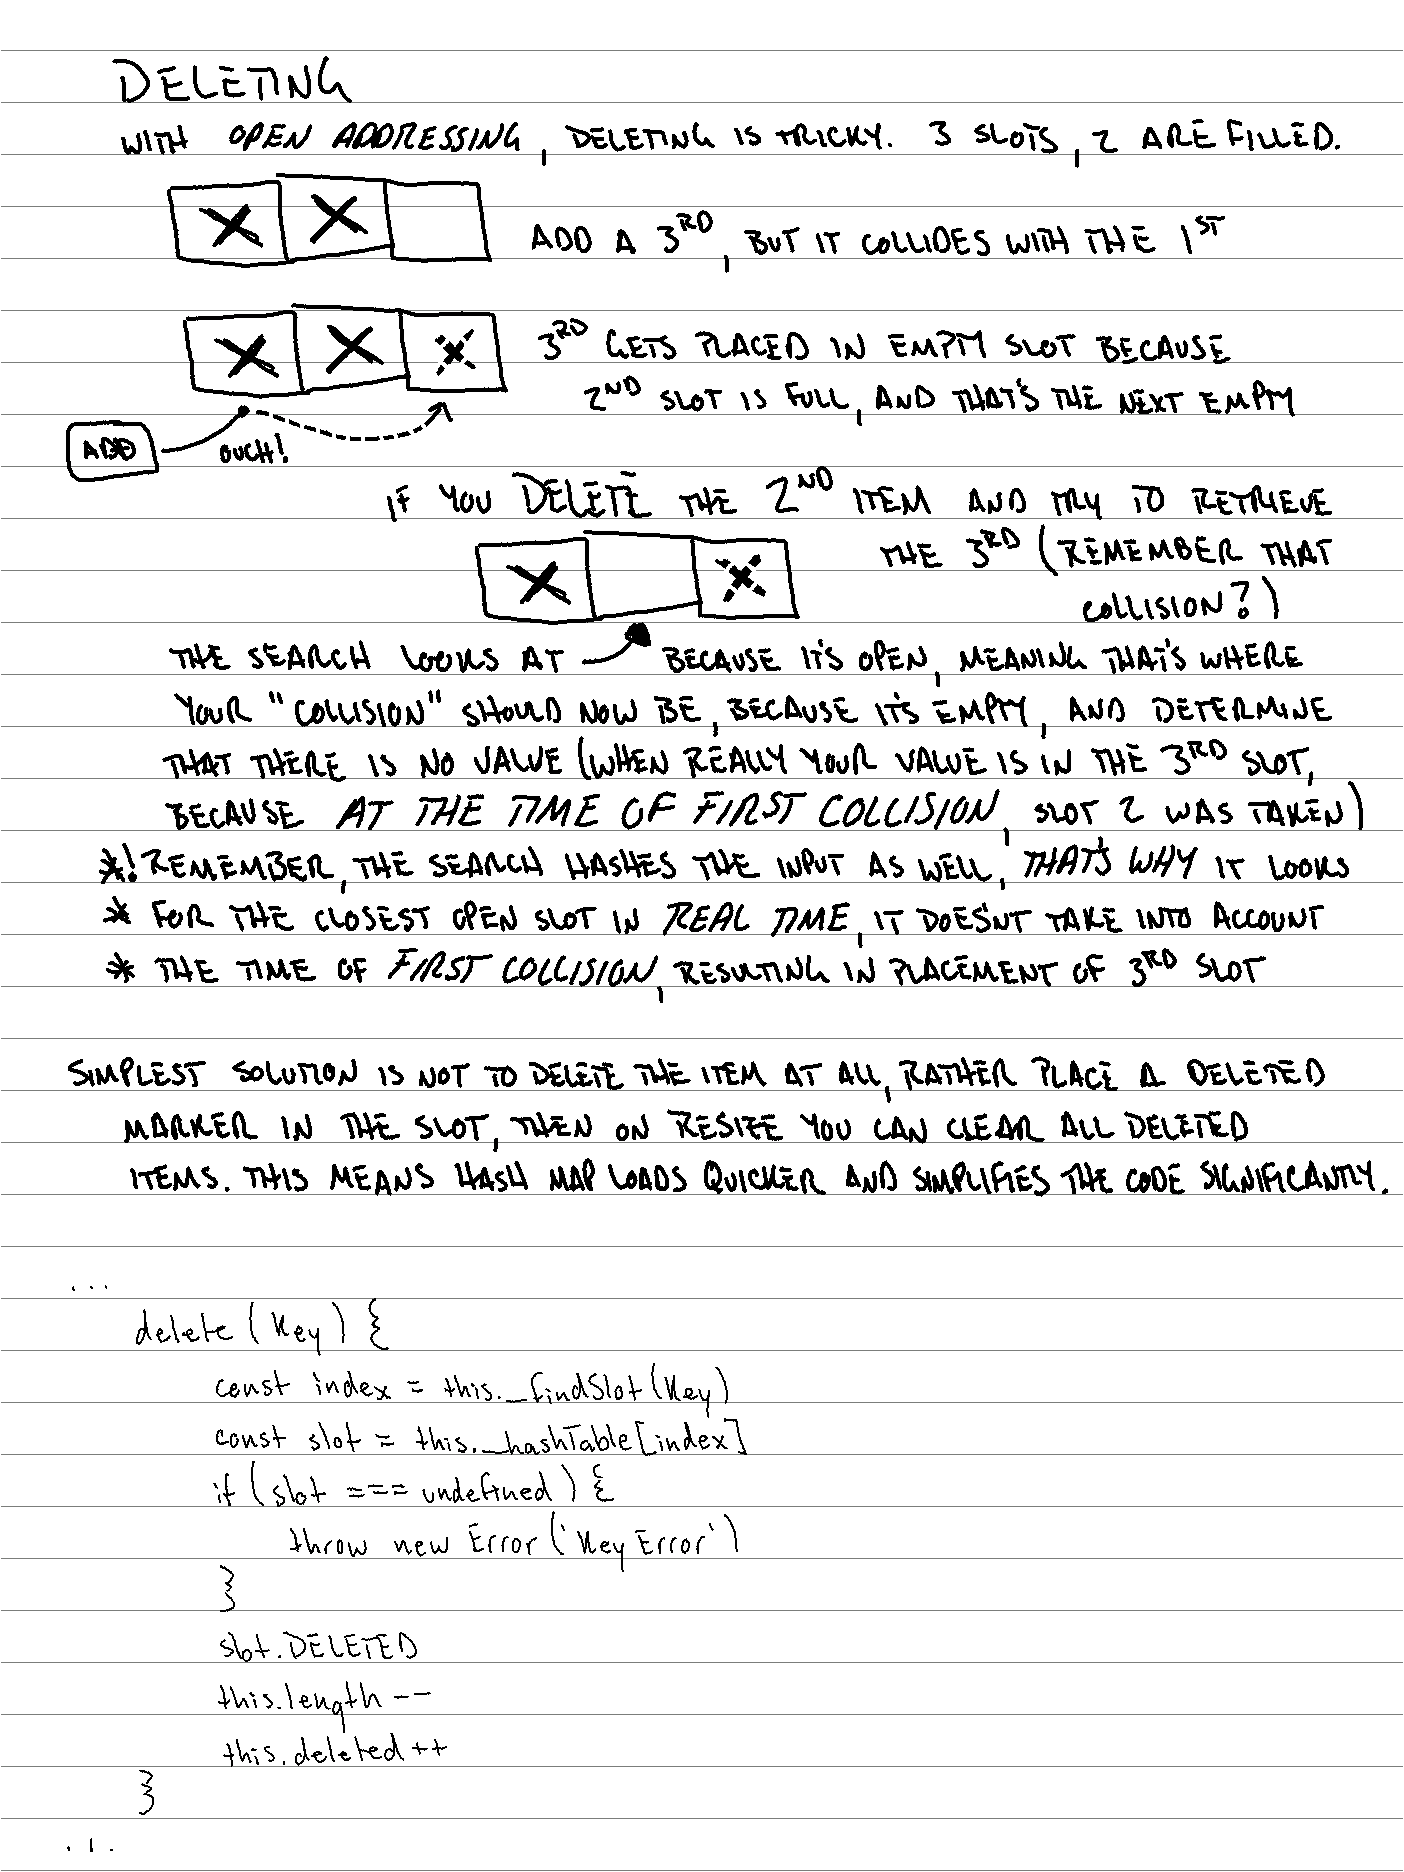 DELETING
WITH OPEN ADDRESSING, DELETING IS TRICKY. 3 SLOTS, 2 ARE FILLED.
ADD A 3RD, BUT IT COLLIDES WITH THE 1ST
3RD GETS PLACED IN EMPTY SLOT BECAUSE
2ND SLOT IS FULL, AND THAT'S THE NEXT EMPTY
ADD
OUCH!
IF YOU DELETE THE 2ND ITEM AND TRY TO RETRIEVE
THE 3RD (REMEMBER THAT
COLLISION?)
THE SEARCH LOOKS AT BECAUSE IT'S OPEN, MEANING THAT'S WHERE
YOUR "COLLISION" SHOULD NOW BE, BECAUSE IT'S EMPTY, AND DETERMINE
THAT THERE IS NO VALUE (WHEN REALLY YOUR VALUE IS IN THE 3RD SLOT,
BECAUSE AT THE TIME OF FIRST COLLISION, SLOT 2 WAS TAKEN)
*! REMEMBER, THE SEARCH HASHES THE INPUT AS WELL, THAT'S WHY IT LOOKS
* FOR THE CLOSEST OPEN SLOT IN REAL TIME, IT DOESN'T TAKE INTO ACCOUNT
* THE TIME OF FIRST COLLISION, RESULTING IN PLACEMENT OF 3RD SLOT
SIMPLEST SOLUTION IS NOT TO DELETE THE ITEM AT ALL, RATHER PLACE A DELETED
MARKER IN THE SLOT, THEN ON RESIZE YOU CAN CLEAR ALL DELETED
ITEMS. THIS MEANS HASH MAP LOADS QUICKER AND SIMPLIFIES THE CODE SIGNIFICANTLY.
...
delete (key) {
const index = this._findSlot(key)
const slot = this._hashTable[index]
if (slot === undefined) {
throw new Error('Key Error')
}
slot.DELETED
this.length--
this.deleted++
}
...